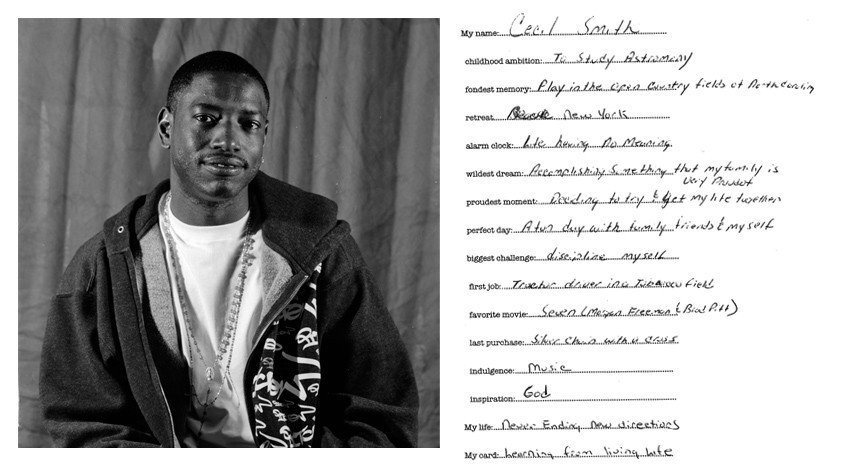 My name: Cecil Smith
childhood ambition: To Study Astronomy
fondest memory: Play in the open Country fields of North Carolina
retreat New York
alarm clock: Life having No Meaning.
wildest dream: Accomplishing Something that my family is
Very Proud of
proudest moment: Deciding to try & get my life together
perfect day: A fun day with family friends & myself
biggest challenge: discipline myself
first job: Tractor driver in a Tobacco Field
favorite movie: Seven (Morgan Freeman & Brad Pitt)
last purchase: Silver Chain with a cross
indulgence: Music
inspiration: God
My life: Never Ending New directions
My card: Learning from living Life